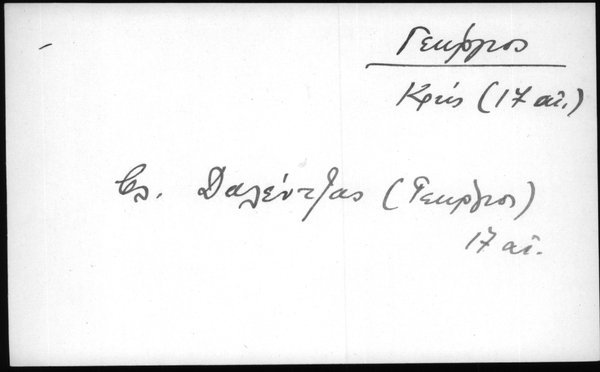 Γεώργιος
Κρής (17 αἰ.)
Βλ. Δαλέντζας (Γεώργιος)
17 αἰ.